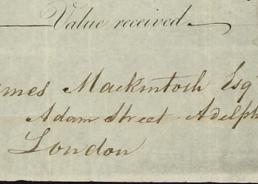 Value received
mes Mackintosh Esq
Adam Street Adelph
London